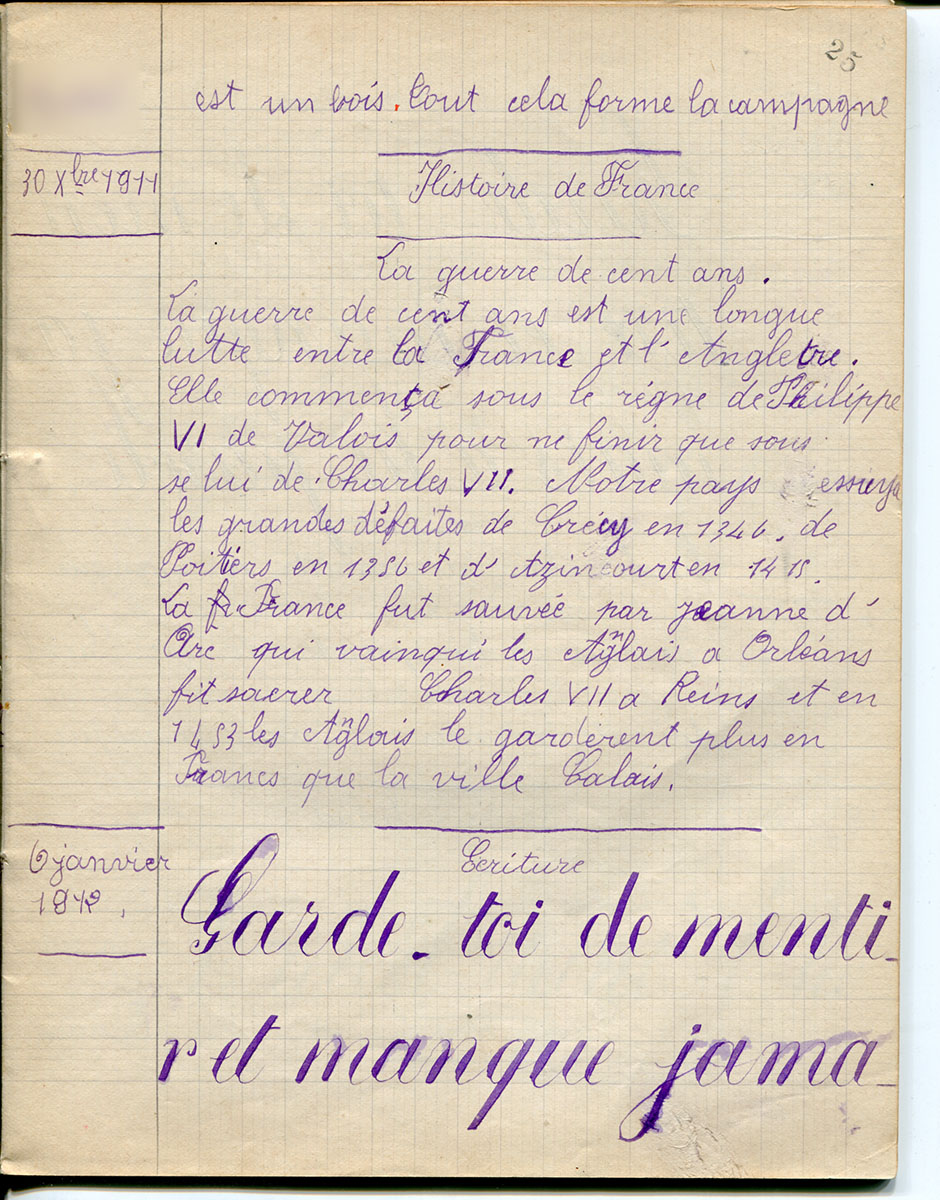 25
est un bois. Tout cela forme la campagne
30 Xbre 1911
Histoire de France
La guerre de cent ans.
La guerre de cent ans est une longue
lutte entre la France et l'Angletre.
Elle commença sous le régne de Philippe
VI de Valois pour ne finir que sous
se lui de Charles VII. Notre pays essuya
les grandes défaites de Crécy en 1346. de
Poitiers en 1356 et d'Azincourt en 1415.
La France fut sauvée par jeanne d'
Arc qui vainqui les Anglais a Orléans
fit sacrer Charles VII a Reins et en
1453 les Anglais le gardèrent plus en
France que la ville Calais.
6 janvier
1912.
Ecriture
Garde-toi de menti-
r et manque jama-